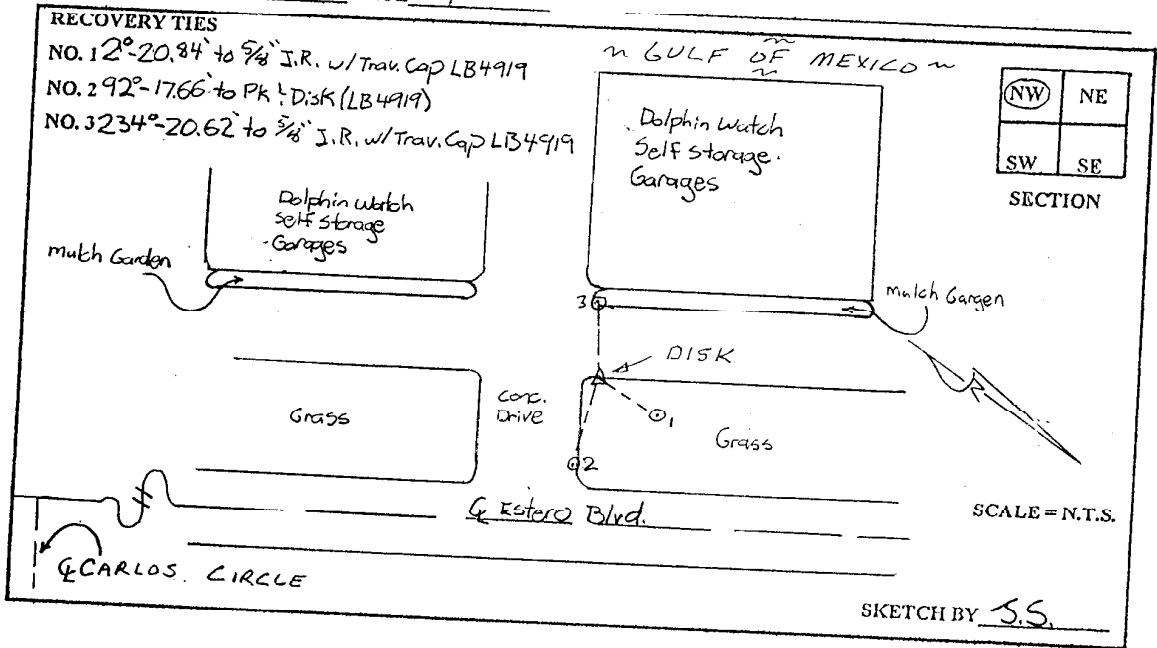 RECOVERY TIES
NO. 1 2°-20.84' to 5/8" I.R. w/Trav. Cap LB4919
NO. 2 92°-17.66' to Pk & Disk (LB4919)
NO. 3 234°-20.62' to 5/8" I.R. w/Trav. Cap LB4919
~ GULF OF MEXICO ~
NW NE
SW SE
SECTION
Dolphin Watch
Self Storage
Garages
Dolphin Watch
Self Storage
Garages
mulch Garden
mulch Gargen
3
DISK
1
2
Conc.
Drive
Grass
Grass
℄ Estero Blvd.
SCALE = N.T.S.
℄ CARLOS. CIRCLE
SKETCH BY S.S.